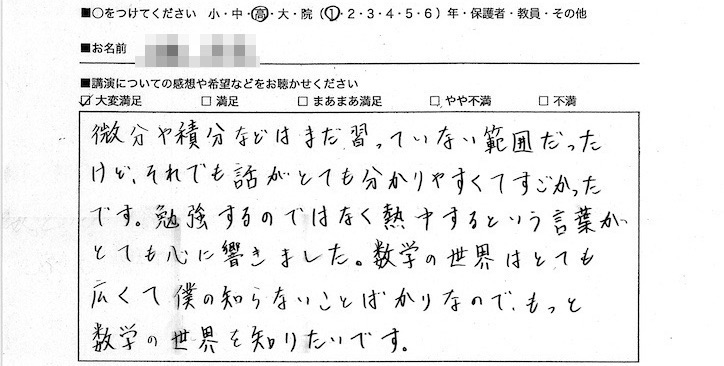 ■○をつけてください 小・中・高・大・院(1・2・3・4・5・6)年・保護者・教員・その他
■お名前
■講演についての感想や希望などをお聴かせください
☑ 大変満足 □ 満足 □ まあまあ満足 □ やや不満 □ 不満
微分や積分などはまだ習っていない範囲だった
けど、それでも話がとても分かりやすくてすごかった
です。勉強するのではなく熱中するという言葉が
とても心に響きました。数学の世界はとても
広くて僕の知らないことばかりなので、もっと
数学の世界を知りたいです。